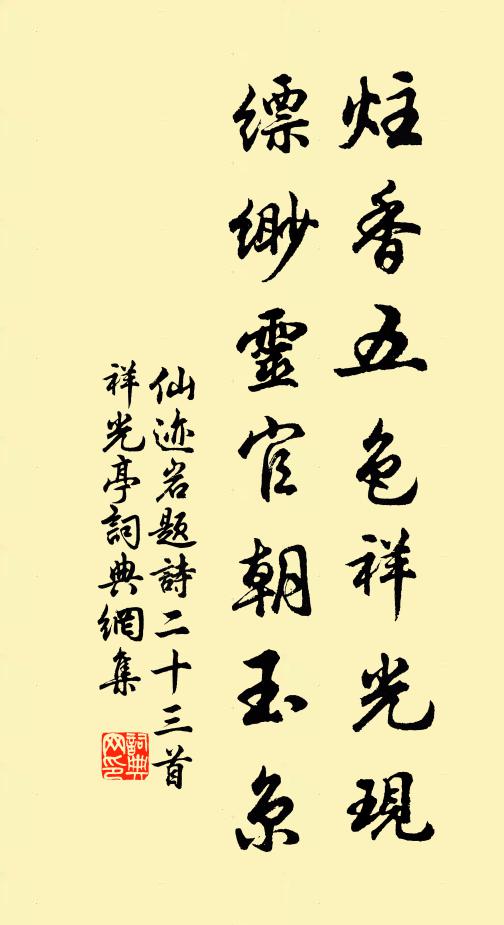 炷香五色祥光現
縹緲靈官朝玉京
仙迹岩題詩二十三首
祥光亭詞典網集
詞典网印